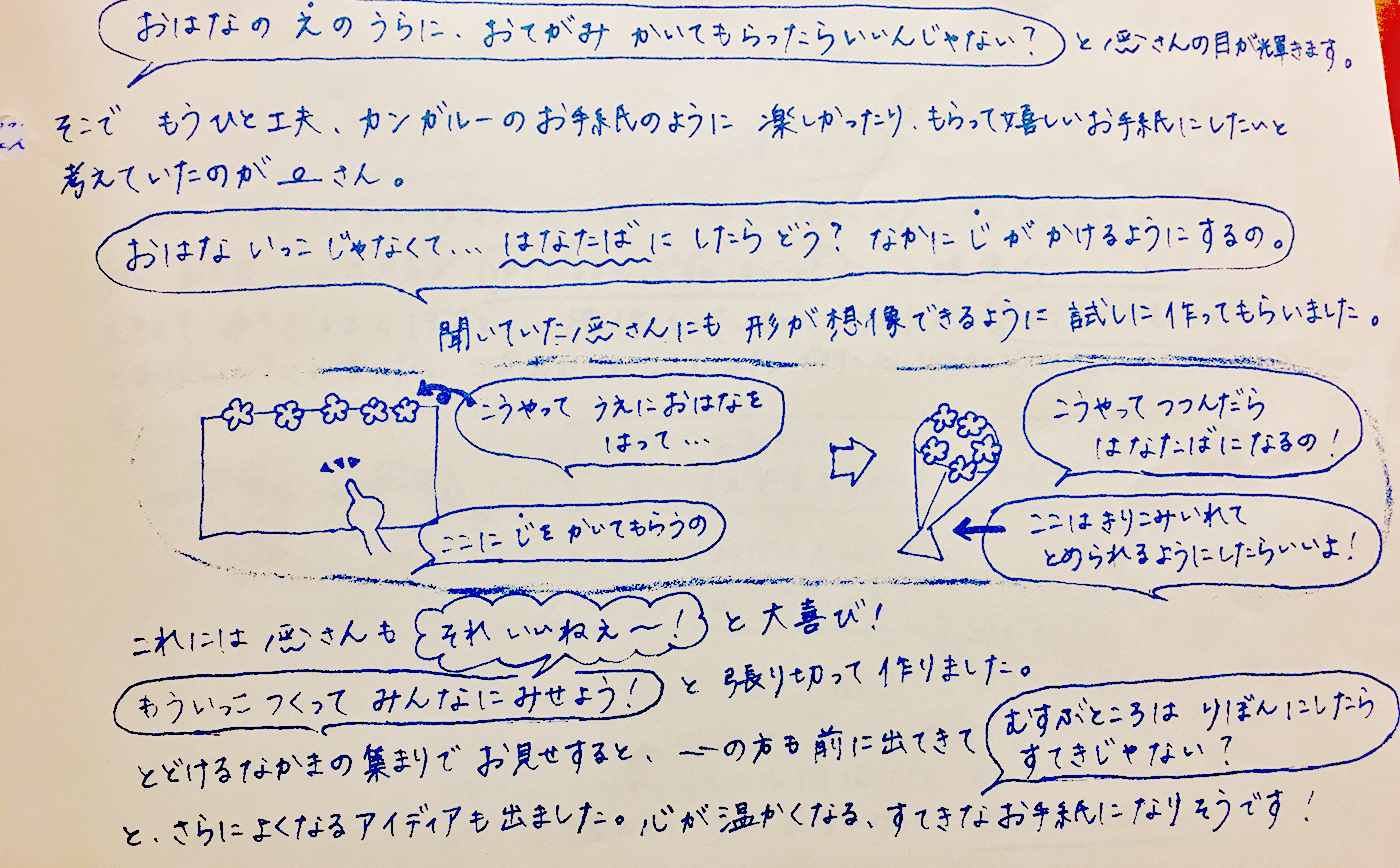 おはなの えのうらに、おてがみ かいてもらったらいいんじゃない? と さんの目が輝きます。
そこで もうひと工夫、カンガルーのお手紙のように 楽しかったり、もらって嬉しいお手紙にしたいと
考えていたのが さん。
おはな いっこ じゃなくて… はなたば に したら どう? なかに じ が かけるようにするの。
聞いていた さんにも 形が想像できるように 試しに作ってもらいました。
こうやって うえにおはなを
はって…
ここに じを かいてもらうの
こうやってつつんだら
はなたばになるの!
ここはきりこみいれて
とめられるようにしたらいいよ!
これには さんも それ いいねぇ〜! と 大喜び!
もういっこ つくって みんなにみせよう! と 張り切って作りました。
とどけるなかまの集まりで お見せすると、 の方も前に出てきて
むすぶところは りぼんにしたら
すてきじゃない?
と、さらによくなるアイディアも出ました。心が温かくなる、すてきなお手紙になりそうです!